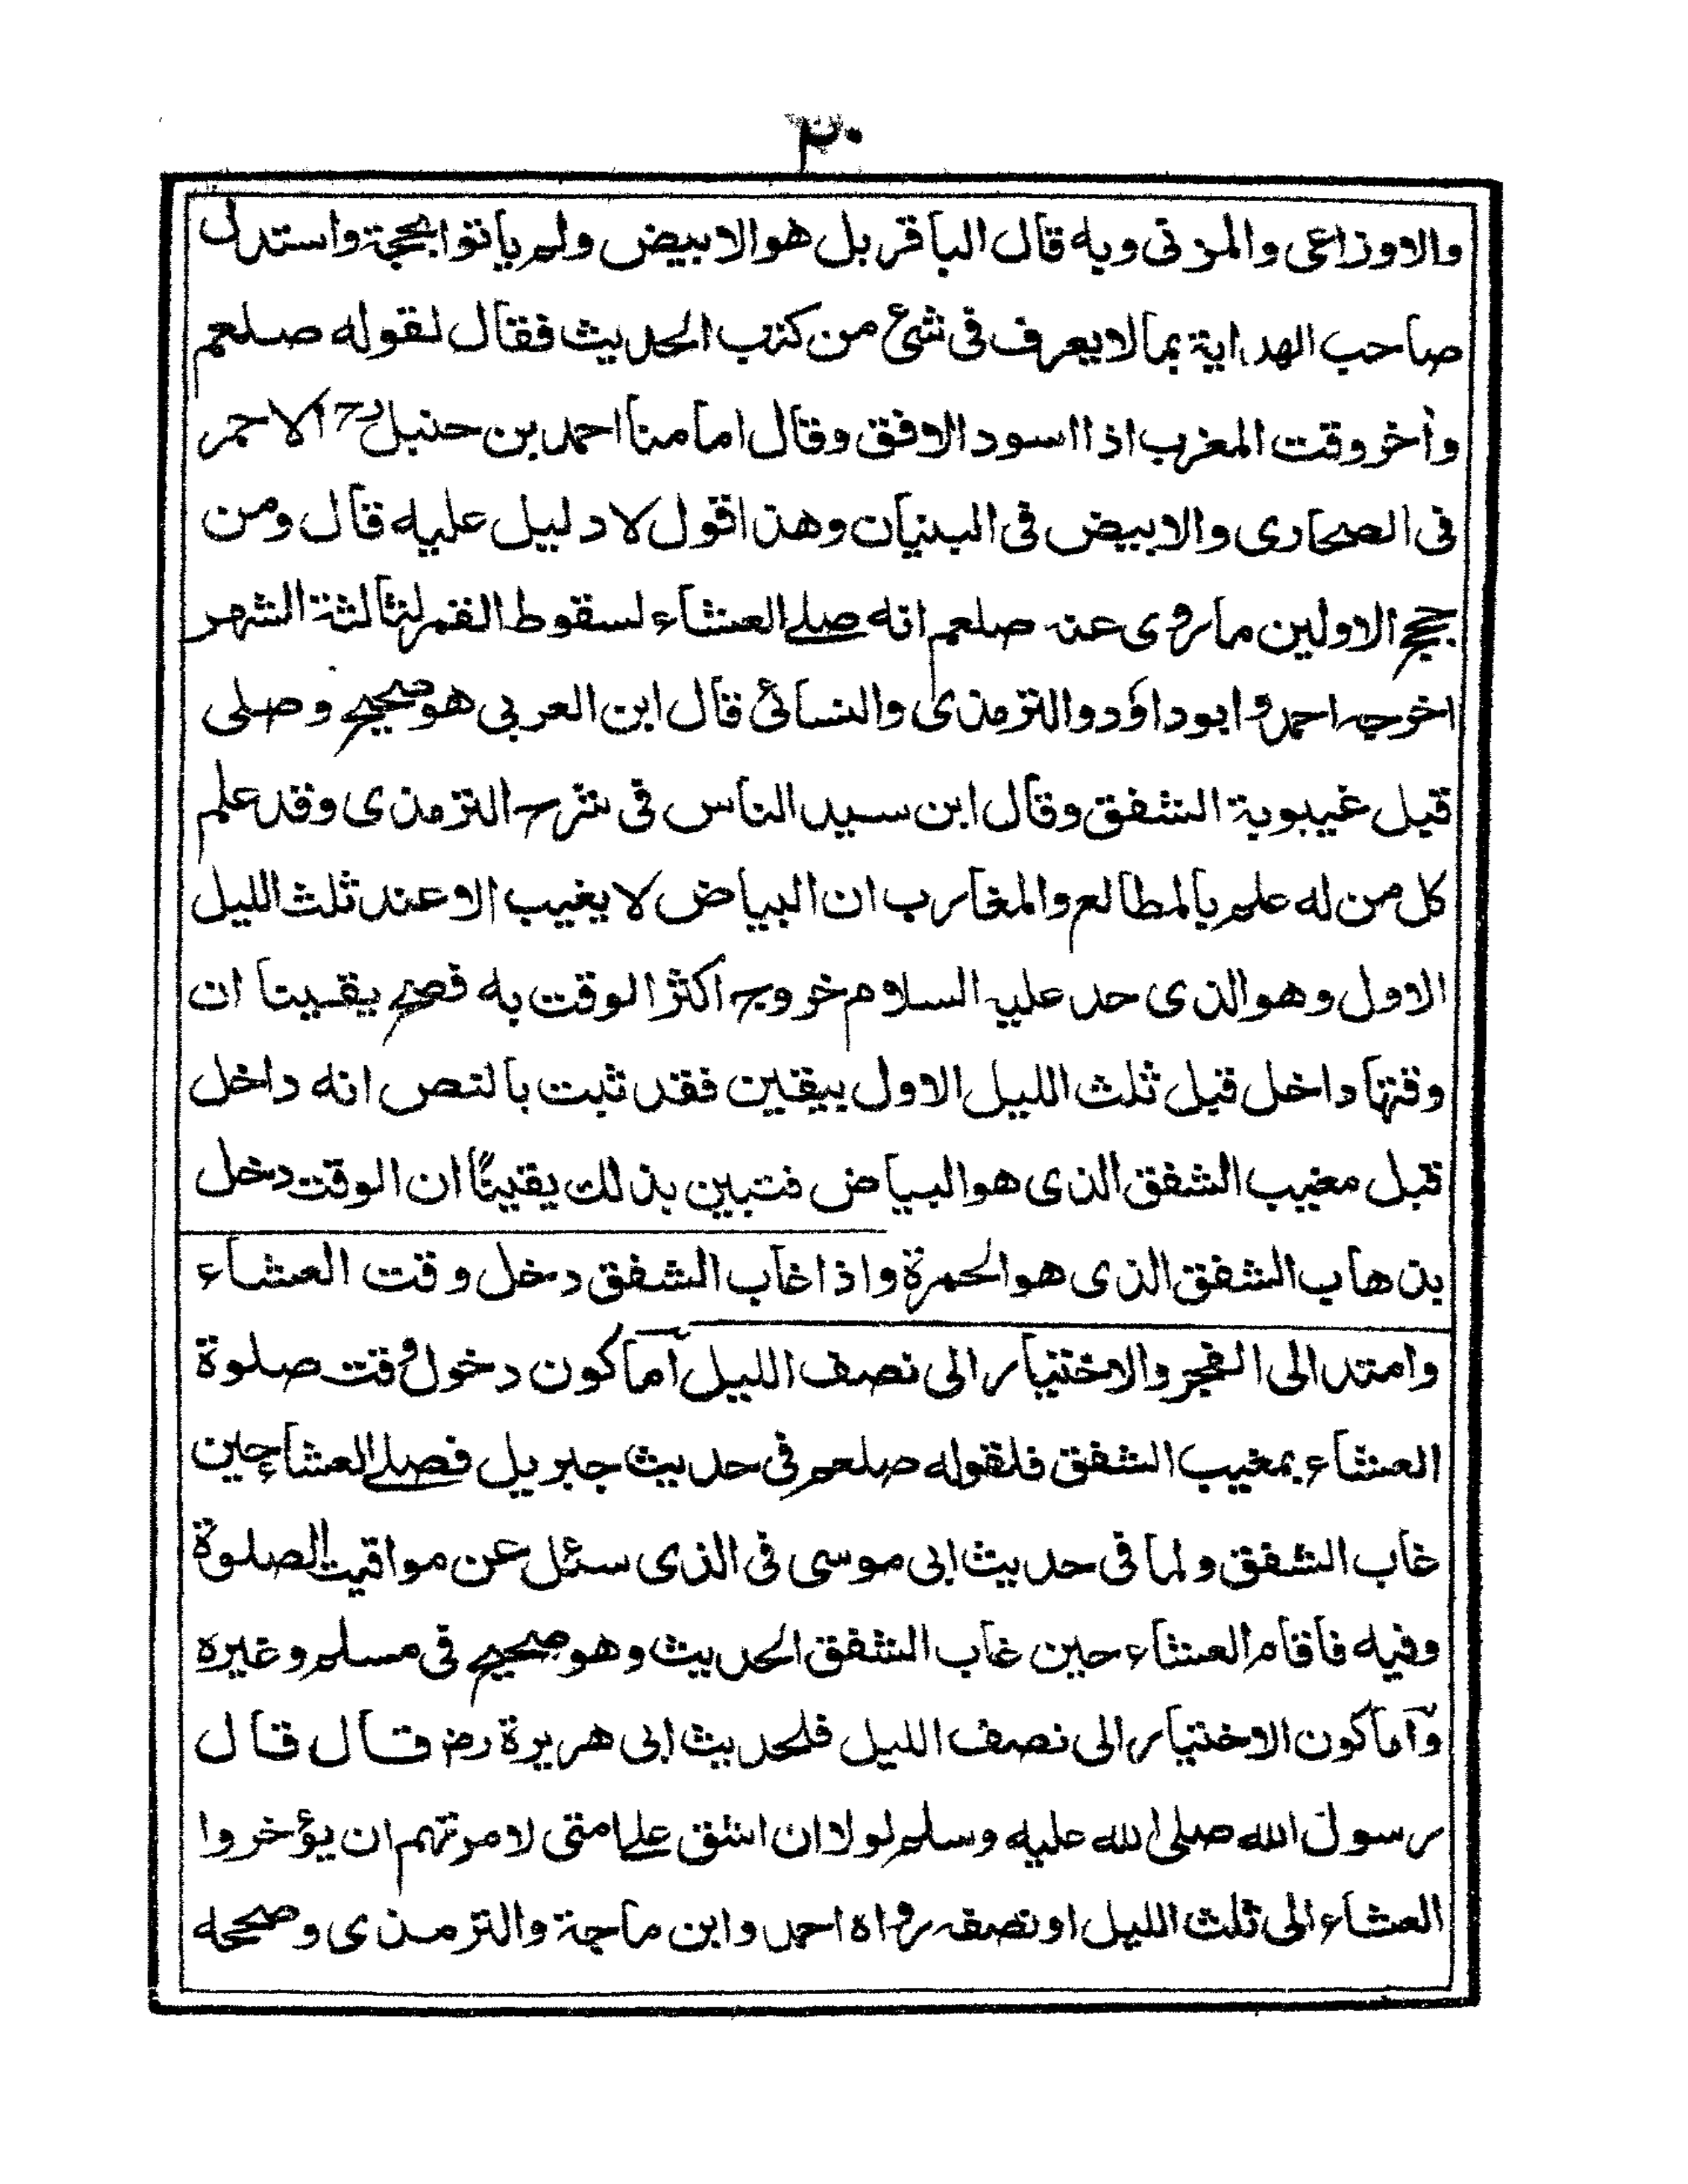 ٣٠
والاوزاعى والمزنى وبه قال الباقر بل هو الابيض ولم ياتوا بحجة واستدل
صاحب الهداية بما لا يعرف فى شئ من كتب الحديث فقال لقوله صلعم
وأخر وقت المغرب اذا اسود الافق وقال امامنا احمد بن حنبل رح الاحمر
فى الصحارى والابيض فى البنيان وهذا قول لا دليل عليه قال ومن
حجج الاولين ما روى عنه صلعم انه صلے العشاء لسقوط القمر لثالثة الشهر
اخرجه احمد وابو داؤد والترمذى والنسائى قال ابن العربى هو صحيح وصلى
قبل غيبوبة الشفق وقال ابن سيد الناس فى شرح الترمذى وقد علم
كل من له علم بالمطالع والمغارب ان البياض لا يغيب الا عند ثلث الليل
الاول وهو الذى حد عليه السلام خروج اكثر الوقت به فصح يقينا ان
وقتها داخل قبل ثلث الليل الاول بيقين فقد ثبت بالنص انه داخل
قبل مغيب الشفق الذى هو البياض فتبين بذلك يقينًا ان الوقت دخل
بذهاب الشفق الذى هو الحمرة واذا غاب الشفق دخل وقت العشاء
وامتد الى الفجر والاختيار الى نصف الليل أما كون دخول وقت صلوة
العشاء بمغيب الشفق فلقوله صلعم فى حديث جبريل فصلے العشاء حين
غاب الشفق ولما فى حديث ابى موسى فى الذى سئل عن مواقيت الصلوة
وفيه فاقام العشاء حين غاب الشفق الحديث وهو صحيح فى مسلم وغيره
وآما كون الاختيار الى نصف الليل فلحديث ابى هريرة رض قال قال
رسول الله صلى الله عليه وسلم لولا ان اشق علے امتى لامرتهم ان يؤخروا
العشاء الى ثلث الليل او نصفه رواه احمد وابن ماجة والترمذى وصححه